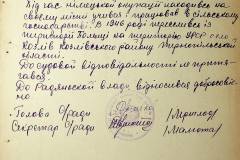 Під час німецької окупації находився на
своєму місці учився і працював в сільському
господарстві. В 1946 році переселився із
території Польщі на територію УРСР село
Козлів Козлівського району Тернопільської
області.
До судової відповідальності не притя-
гався.
До Радянської влади відноситься добросовіс-
но
Голова с/ради
Секретар с/ради